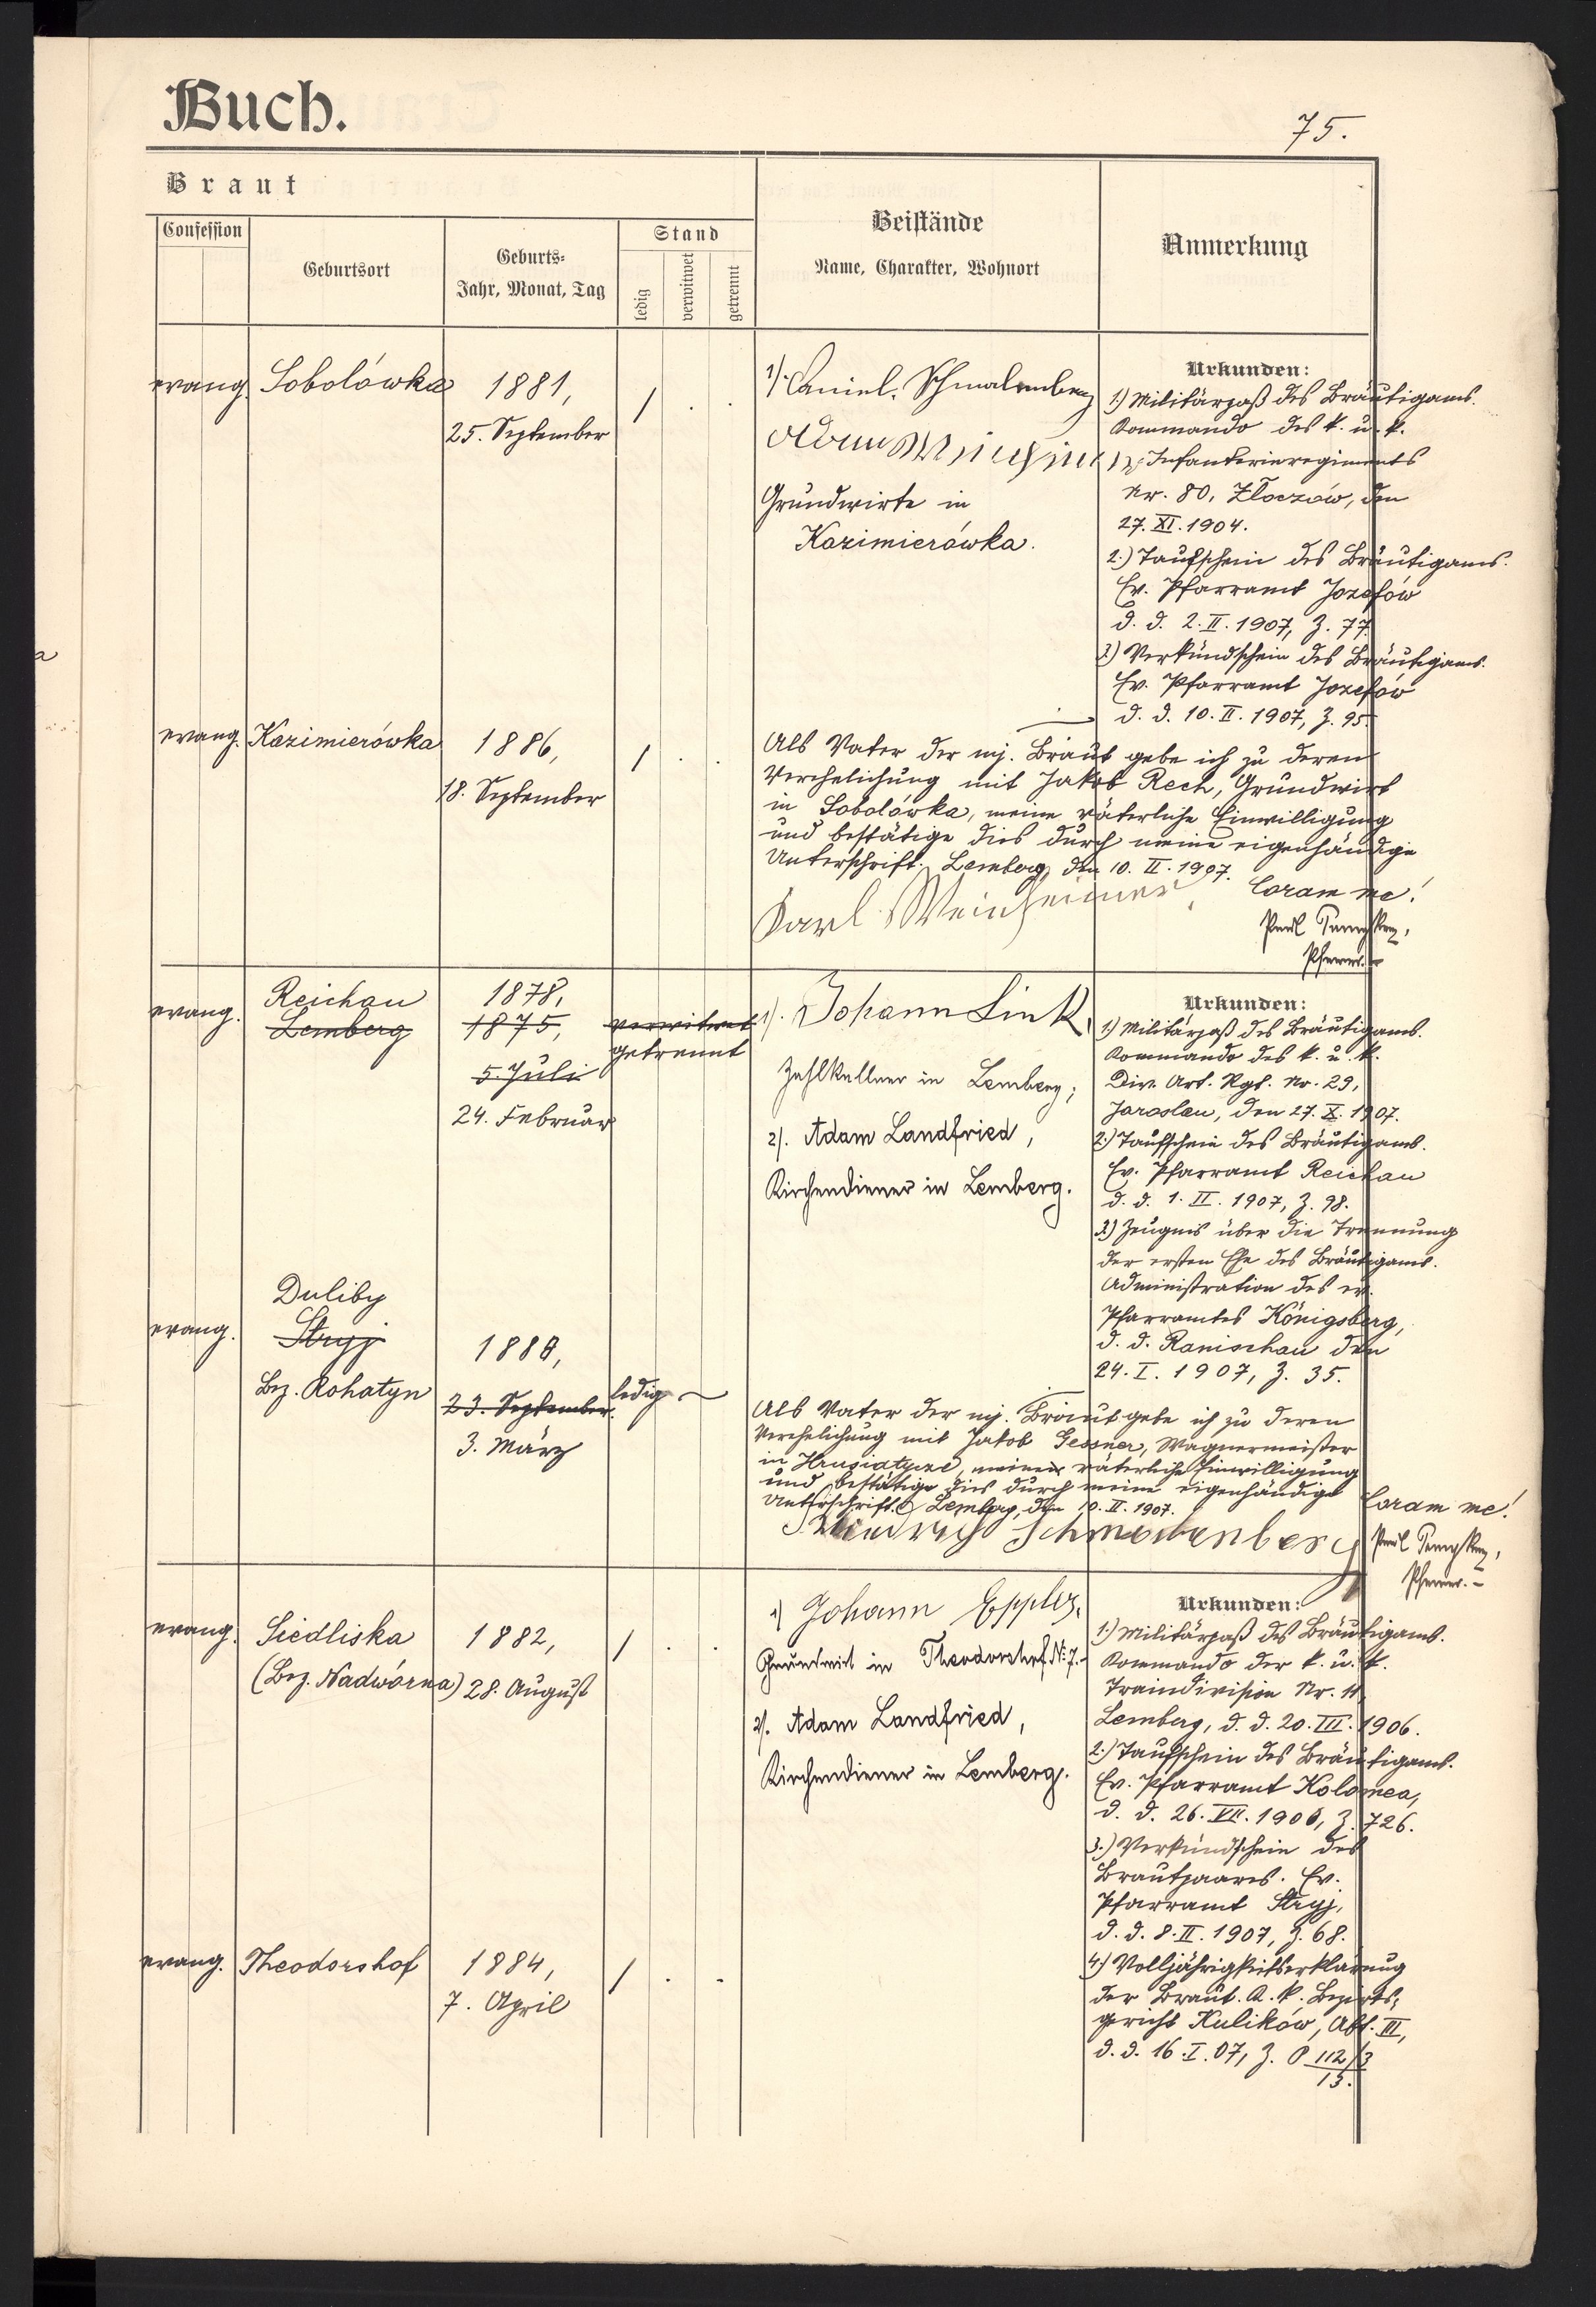 Buch.
75.
Braut
Confession
Geburtsort
Geburts-
Jahr, Monat, Tag
Stand
ledig
verwitwet
getrennt
Beistände
Name, Charakter, Wohnort
Anmerkung
evang. Sobolówka 1881, /
25. September
1/. Daniel Schmalenberg
Adam
Grundwirte in
Kazimierówka.
Urkunden:
1.) Militärpaß des Bräutigams.
Kommando des k. u. k.
Infanterieregiments
Nr. 80, Złoczów, den
27. XI. 1904.
2.) Taufschein des Bräutigams.
Ev. Pfarramt Josefów
d. d. 2. II. 1907, Z. 77.
3.) Verkündschein des Bräutigams.
Ev. Pfarramt Josefów
d. d. 10. II. 1907, Z. 95.
evang. Kazimierówka 1886, /
18. September
Als Vater der mj. Braut gebe ich zu deren
Verehelichung mit Jakob Rech, Grundwirt
in Sobolówka, meine väterliche Einwilligung
und bestätige dies durch meine eigenhändige
Unterschrift. Lemberg, den 10. II. 1907.
Karl Weinheimer, Coram me!
Paul
Pfarrer.
evang. Reichau 1878,
Lemberg 1875, verwitwet
getrennt
5. Juli
24. Februar
1/. Johann Link,
Zahlkellner in Lemberg;
2/. Adam Landfried,
Kirchendiener in Lemberg.
Urkunden:
1.) Militärpaß des Bräutigams.
Kommando des k. u. k.
Div. Art. Rgt. Nr. 29,
Jaroslau, den 27. X. 1907.
2.) Taufschein des Bräutigams.
Ev. Pfarramt Reichau
d. d. 1. II. 1907, Z. 98.
3.) Zeugnis über die Trennung
der ersten Ehe des Bräutigams.
Administration des ev.
Pfarramtes Königsberg,
d. d. Ranischau den
24. I. 1907, Z. 35.
Duliby
evang. Stryj 1888,
Bez. Rohatyn 23. September ledig
3. März
Als Vater der mj. Braut gebe ich zu deren
Verehelichung mit Jakob Gessner, Wagnermeister
in Hrusiatycze, meine väterliche Einwilligung
und bestätige dies durch meine eigenhändige
Unterschrift. Lemberg, den 10. II. 1907.
Coram me!
Heinrich Schmalenberg
Paul
Pfarrer.
evang. Siedliska 1882, /
(Bez. Nadwórna) 28. August
1/ Johann Eppler,
Grundwirt in Theodorshof Nr. 7.
2/. Adam Landfried,
Kirchendiener in Lemberg.
Urkunden:
1.) Militärpaß des Bräutigams.
Kommando der k. u. k.
Traindivision Nr. 11,
Lemberg, d. d. 20. III. 1906.
2.) Taufschein des Bräutigams.
Ev. Pfarramt Kolomea,
d. d. 26. VII. 1906, Z. 726.
3.) Verkündschein des
Brautpaares. Ev.
Pfarramt Stryj,
d. d. 8. II. 1907, Z. 68.
4.) Volljährigkeitserklärung
der Braut. K. k. Bezirks-
gericht Kulików, Abt. III,
d. d. 16. I. 07, Z. P 112/3
13.
evang. Theodorshof 1884, /
7. April